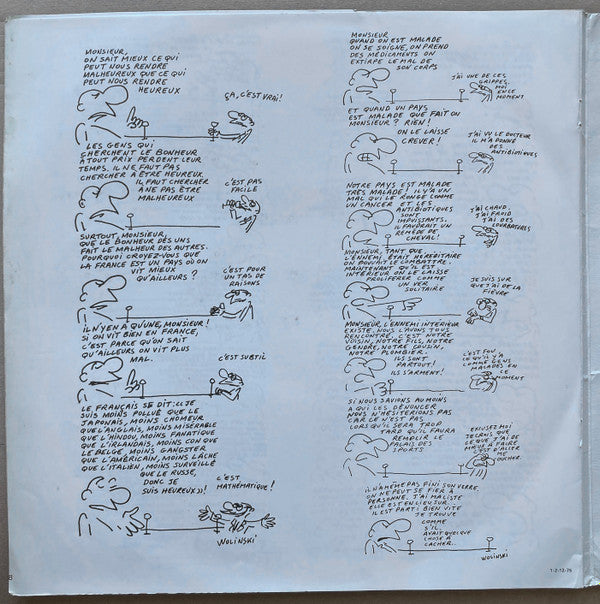 MONSIEUR,
ON SAIT MIEUX CE QUI
PEUT NOUS RENDRE
MALHEUREUX QUE CE QUI
PEUT NOUS RENDRE
HEUREUX
ÇA, C'EST VRAI!
LES GENS QUI
CHERCHENT LE BONHEUR
A TOUT PRIX PERDENT LEUR
TEMPS. IL NE FAUT PAS
CHERCHER A ÊTRE HEUREUX.
IL FAUT CHERCHER
A NE PAS ÊTRE
MALHEUREUX
C'EST PAS
FACILE
SURTOUT, MONSIEUR,
QUE LE BONHEUR DES UNS
FAIT LE MALHEUR DES AUTRES.
POURQUOI CROYEZ-VOUS QUE
LA FRANCE EST UN PAYS OÙ ON
VIT MIEUX
QU'AILLEURS?
C'EST POUR
UN TAS DE
RAISONS
IL N'Y EN A QU'UNE, MONSIEUR!
SI ON VIT BIEN EN FRANCE,
C'EST PARCE QU'ON SAIT
QU'AILLEURS ON VIT PLUS
MAL.
C'EST SUBTIL
LE FRANÇAIS SE DIT: «JE
SUIS MOINS POLLUÉ QUE LE
JAPONAIS, MOINS CHOMEUR
QUE L'ANGLAIS, MOINS MISÉRABLE
QUE L'HINDOU, MOINS FANATIQUE
QUE L'IRLANDAIS, MOINS CON QUE
LE BELGE, MOINS GANGSTER
QUE L'AMÉRICAIN, MOINS LÂCHE
QUE L'ITALIEN, MOINS SURVEILLÉ
QUE LE RUSSE,
DONC JE
SUIS HEUREUX»!
C'EST
MATHÉMATIQUE!
WOLINSKI
8
MONSIEUR
QUAND ON EST MALADE
ON SE SOIGNE, ON PREND
DES MÉDICAMENTS ON
EXTIRPE LE MAL DE
SON CORPS
J'AI UNE DE CES
GRIPPES,
MOI
EN CE
MOMENT
ET QUAND UN PAYS
EST MALADE QUE FAIT ON
MONSIEUR? RIEN!
ON LE LAISSE
CREVER!
J'AI VU LE DOCTEUR
IL M'A DONNÉ
DES
ANTIBIOTIQUES
NOTRE PAYS EST MALADE
TRÈS MALADE! IL Y A UN
MAL QUI LE RONGE COMME
UN CANCER ET LES
ANTIBIOTIQUES
SONT
IMPUISSANTS.
IL FAUDRAIT UN
REMÈDE DE
CHEVAL!
J'AI CHAUD,
J'AI FROID
J'AI DES
COURBATURES
MONSIEUR, TANT QUE
L'ENNEMI ÉTAIT HÉRÉDITAIRE
ON POUVAIT LE COMBATTRE
MAINTENANT QU'IL EST
INTÉRIEUR ON LE LAISSE
PROLIFÉRER COMME
UN VER
SOLITAIRE
JE SUIS SUR
QUE J'AI DE LA
FIÈVRE
MONSIEUR, L'ENNEMI INTÉRIEUR
EXISTE. NOUS L'AVONS TOUS
RENCONTRÉ, C'EST NOTRE
VOISIN, NOTRE FILS, NOTRE
GENDRE, NOTRE COUSIN,
NOTRE PLOMBIER.
ILS SONT
PARTOUT!
ILS S'ARMENT!
C'EST FOU
CE QU'IL Y A
DE GENS
MALADES EN
CE
MOMENT
SI NOUS SAVIONS AU MOINS
A QUI LES DÉNONCER
NOUS N'HÉSITERIONS PAS
CAR CE N'EST PAS
LORSQU'IL SERA TROP
TARD QU'IL FAUDRA
REMPLIR LE
PALAIS DES
SPORTS
EXCUSEZ MOI
JE CROIS QUE
CE QUE J'AI DE
MIEUX À FAIRE
C'EST D'ALLER
ME
COUCHER.
IL N'A MÊME PAS FINI SON VERRE.
ON NE PEUT SE FIER À
PERSONNE. J'AI MA LISTE
ELLE EST EN LIEU SUR.
IL EST PARTI BIEN VITE
JE TROUVE
COMME
S'IL
AVAIT QUELQUE
CHOSE À
CACHER...
WOLINSKI